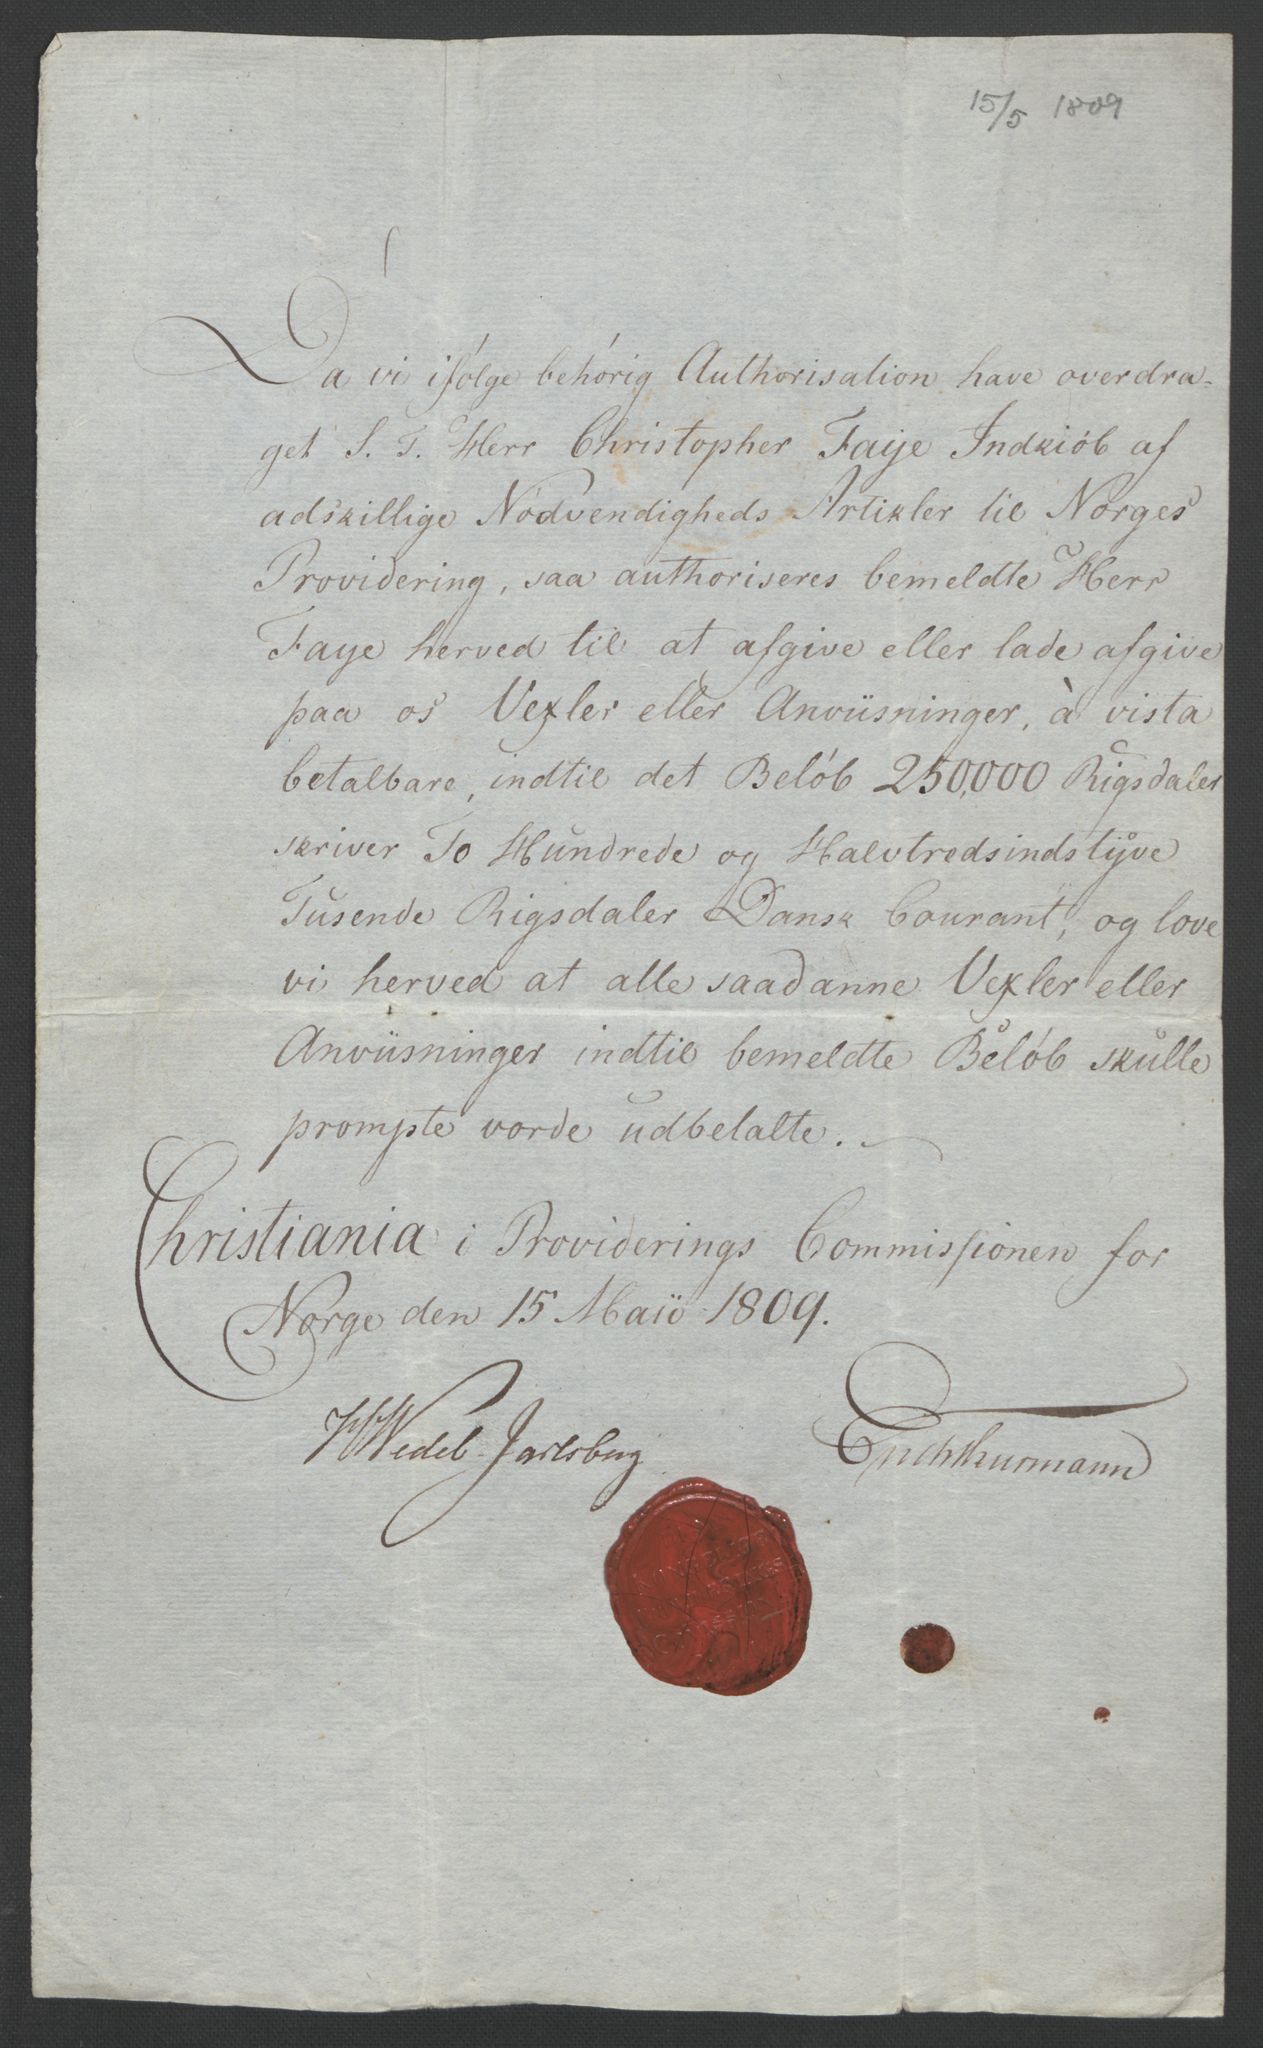 15/5 1809
Da vi ifölge behörig Authorisation have overdra-
get S. T. Herr Christopher Faye Indkiöb af
adskillige Nödvendigheds Artikler til Norges
Providering, saa authoriseres bemeldte Herr
Faye herved til at afgive eller lade afgive
paa os Vexler eller Anviisninger, à vista
betalbare, indtil det Belöb 250,000 Rigsdaler
skriver To Hundrede og Halvtredsindstyve
Tusende Rigsdaler Dansk Courant, og love
vi herved at alle saadanne Vexler eller
Anviisninger indtil bemeldte Belöb skulle
prompte vorde udbetalte.
Christiania i Providerings Commissionen for
Norge den 15 Maii 1809.
HWedel-Jarlsberg